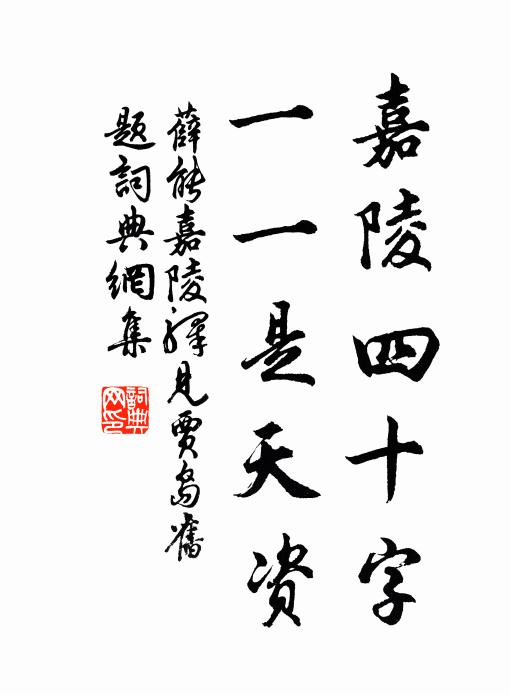 嘉陵四十字
一一是天资
薛能嘉陵驿见贾岛舊
题詞典網集
詞典
网印